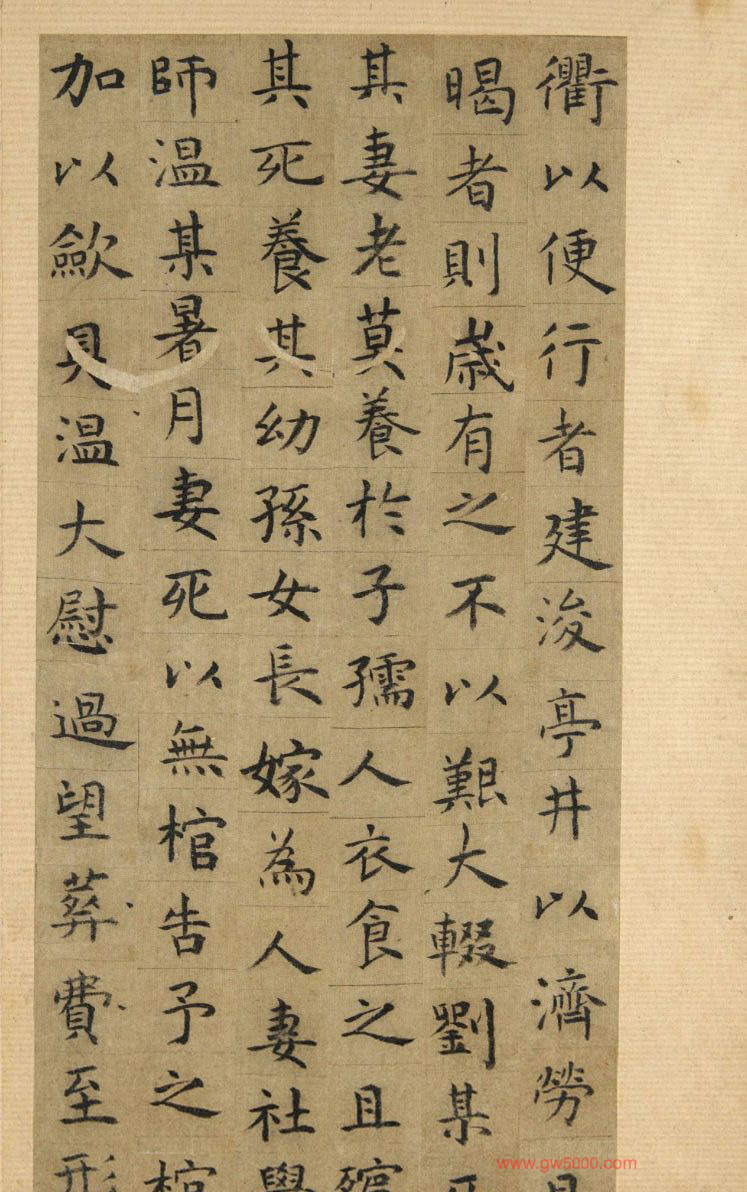 衢以便行者建浚亭井以濟勞
暍者則歲有之不以艱大輟劉某
其妻老莫養於子孺人衣食之且殯
其死養其幼孫女長嫁為人妻社學
師溫某暑月妻死以無棺告予之棺
加以歛具溫大慰過望葬費至形
www.gw5000.com